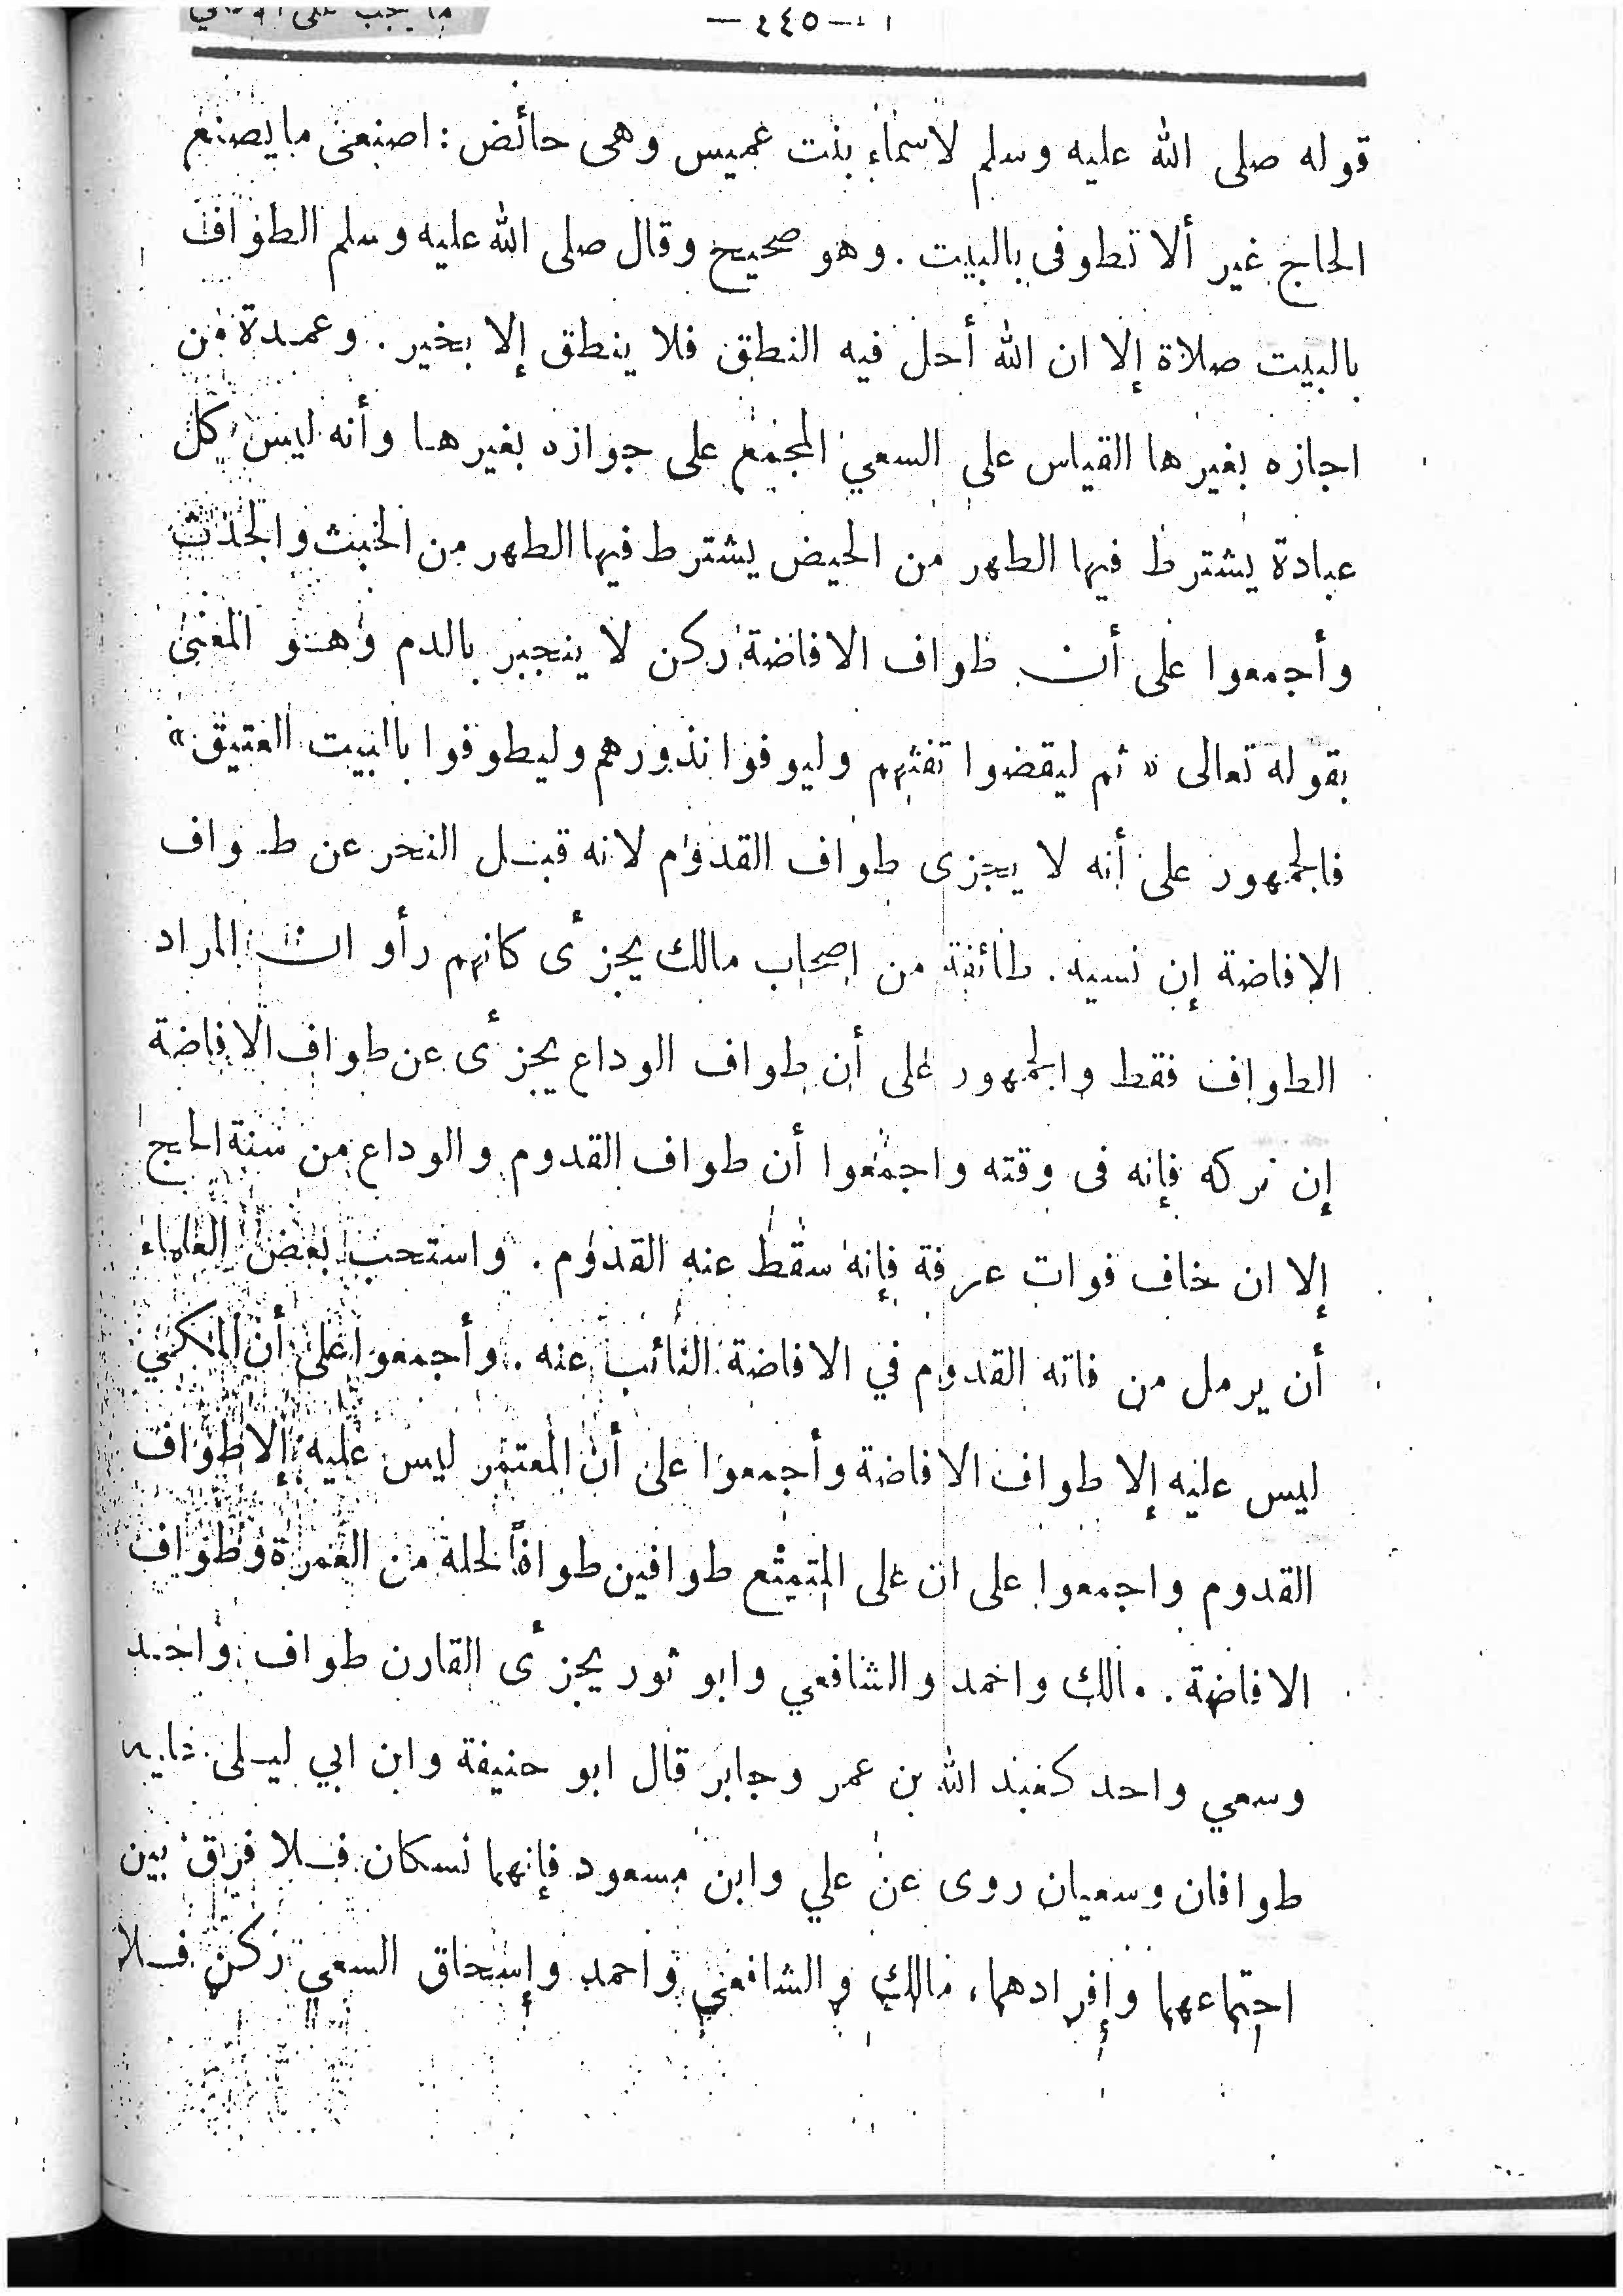 — ٤٤٥ —
قوله صلى الله عليه وسلم لاسماء بنت عميس وهى حائض : اصنعى ما يصنع
الحاج غير ألا تطوفى بالبيت . وهو صحيح وقال صلى الله عليه وسلم الطواف
بالبيت صلاة إلا ان الله أحل فيه النطق فلا ينطق إلا بخير . وعمدة من
اجازه بغيرها القياس على السعي المجمع على جوازه بغيرها وأنه ليس كل
عبادة يشترط فيها الطهر من الحيض يشترط فيها الطهر من الخبث والحدث
وأجمعوا على أن طواف الافاضة ركن لا ينجبر بالدم وهو المعنى
بقوله تعالى « ثم ليقضوا تفثهم وليوفوا نذورهم وليطوفوا بالبيت العتيق »
فالجمهور على أنه لا يجزى طواف القدوم لانه قبل النحر عن طواف
الافاضة إن نسيه . طائفة من اصحاب مالك يجزئ كانهم رأو ان المراد
الطواف فقط والجمهور على أن طواف الوداع يجزئ عن طواف الافاضة
إن تركه فإنه فى وقته واجمعوا أن طواف القدوم والوداع من سنة الحج
إلا ان خاف فوات عرفة فإنه سقط عنه القدوم . واستحب بعض العلماء
أن يرمل من فاته القدوم في الافاضة النائب عنه . وأجمعوا على أن المكي
ليس عليه إلا طواف الافاضة وأجمعوا على أن المعتمر ليس عليه إلا طواف
القدوم واجمعوا على ان على المتمتع طوافين طوافاً لحله من العمرة وطواف
الافاضة . مالك واحمد والشافعي وابو ثور يجزئ القارن طواف واحد
وسعي واحد كعبد الله بن عمر وجابر قال ابو حنيفة وابن ابي ليلى عليه
طوافان وسعيان روى عن علي وابن مسعود فإنهما نسكان فلا فرق بين
اجتماعهما وإفرادهما ، مالك والشافعي واحمد وإسحاق السعي ركن فلا